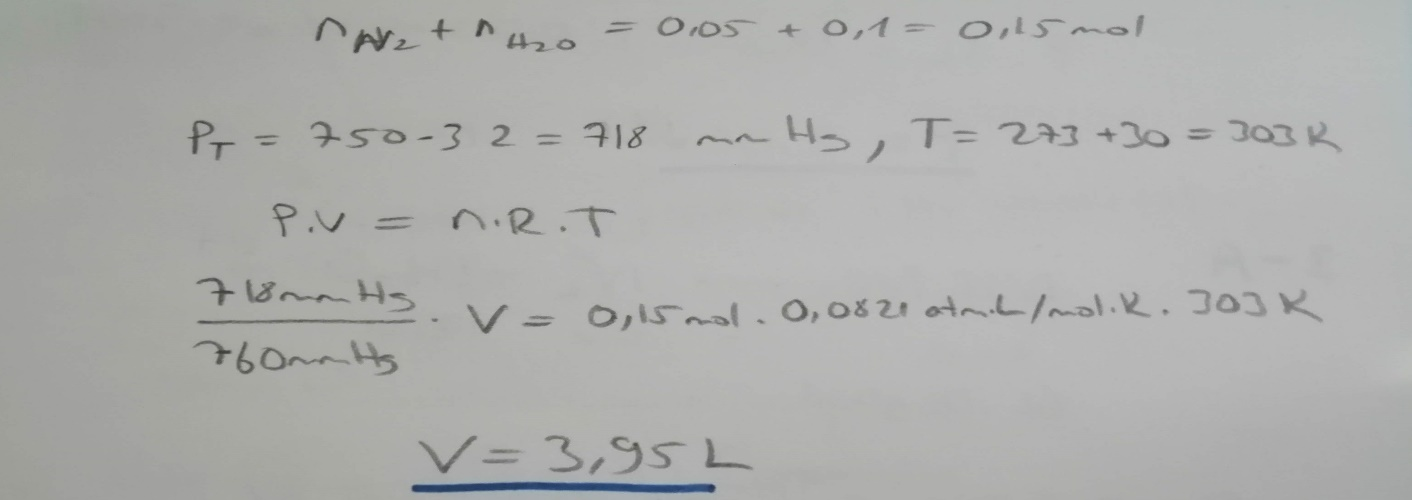 nN2 + nH2O = 0,05 + 0,1 = 0,15 mol
PT = 750-32 = 718 mmHg, T= 273 +30 = 303K
P.V = n.R.T
718mmHg/760mmHg . V = 0,15 mol . 0,0821 atm.L/mol.K . 303K
V = 3,95 L